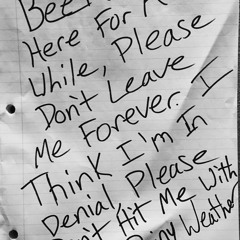 Here For A
While, Please
Don't Leave
Me Forever. I
Think I'm In
Denial, Please
Don't Hit Me With
Rainy Weather